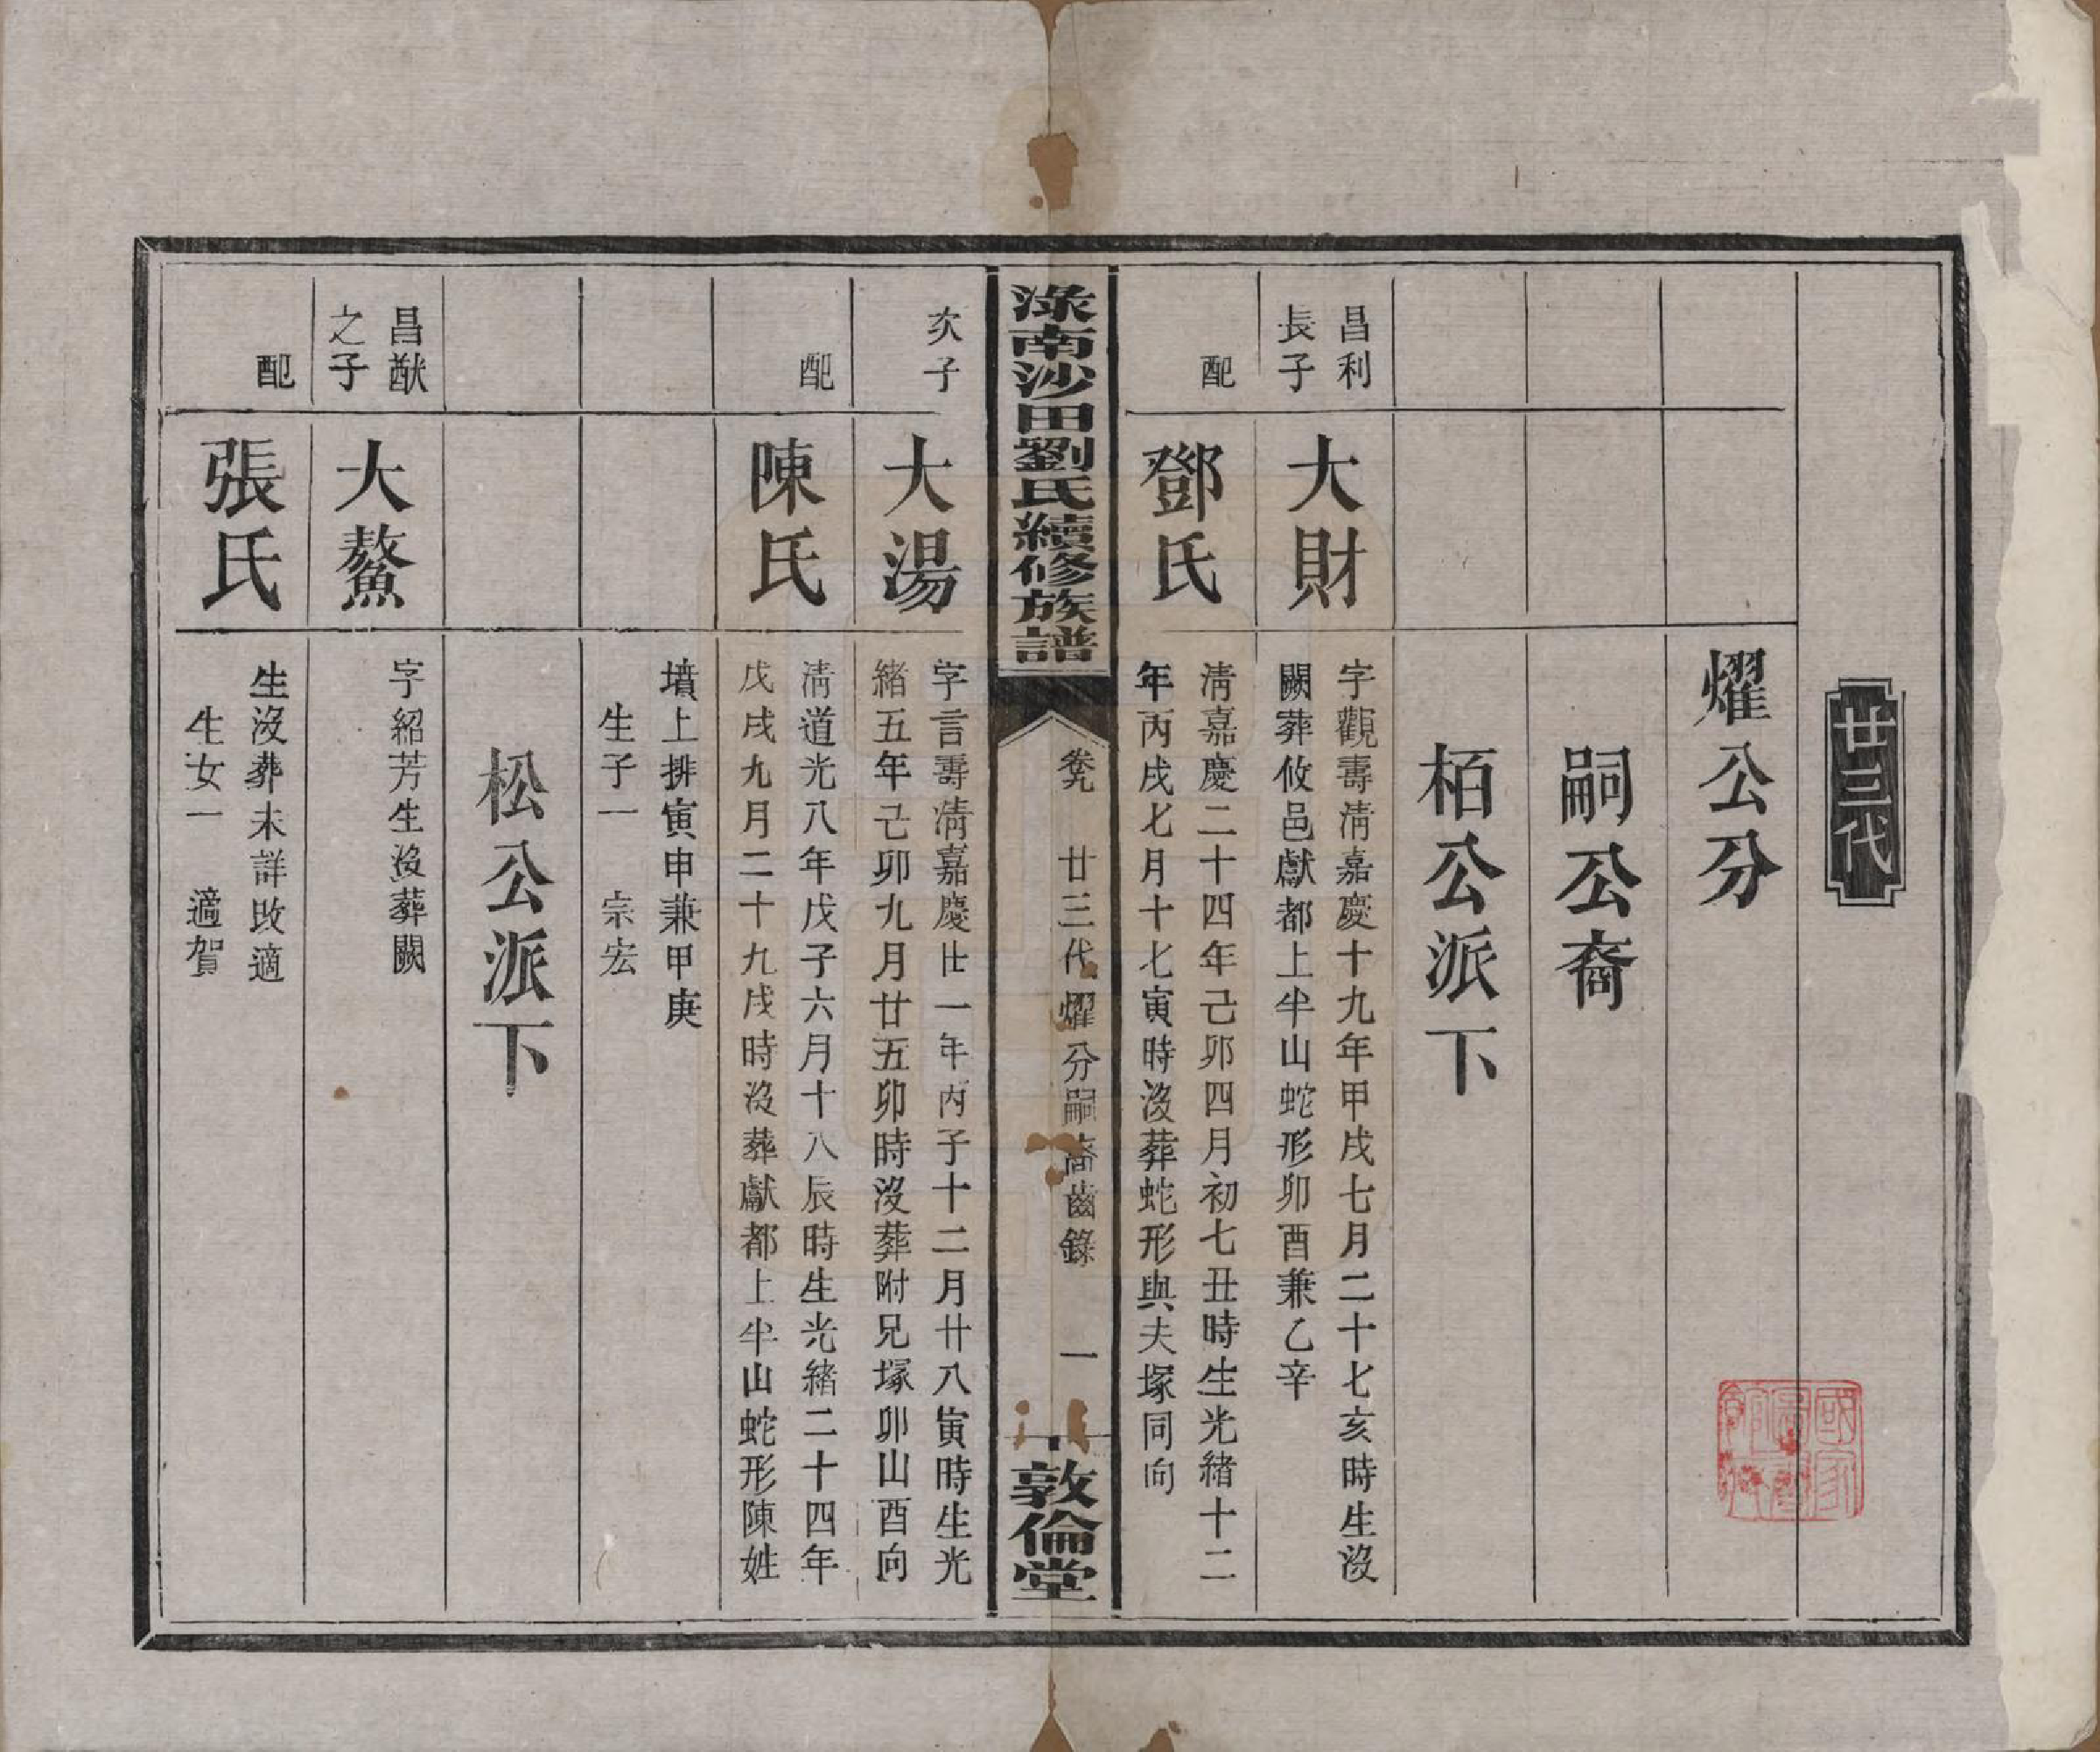 廿三代
燿公分
嗣公裔
栢公派下
昌利
長子
大財
字觀壽淸嘉慶十九年甲戌七月二十七亥時生沒
闕葬攸邑獻都上半山蛇形卯酉兼乙辛
配
鄧氏
淸嘉慶二十四年己卯四月初七丑時生光緒十二
年丙戌七月十七寅時沒葬蛇形與夫塚同向
淥南沙田劉氏續修族譜
卷九
廿三代燿分嗣裔齒錄
一
敦倫堂
次子
大湯
字言壽淸嘉慶廿一年丙子十二月廿八寅時生光
緒五年己卯九月廿五卯時沒葬附兄塚卯山酉向
配
陳氏
淸道光八年戊子六月十八辰時生光緒二十四年
戊戌九月二十九戌時沒葬獻都上半山蛇形陳姓
墳上排寅申兼甲庚
生子一 宗宏
松公派下
昌猷
之子
大鰲
字紹芳生沒葬闕
配
張氏
生沒葬未詳改適
生女一 適賀
國家圖書館藏